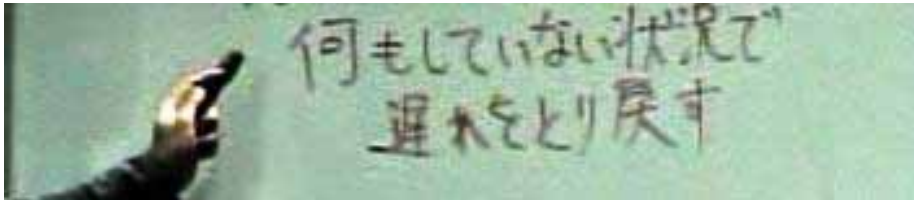 何もしていない状況で
遅れをとり戻す